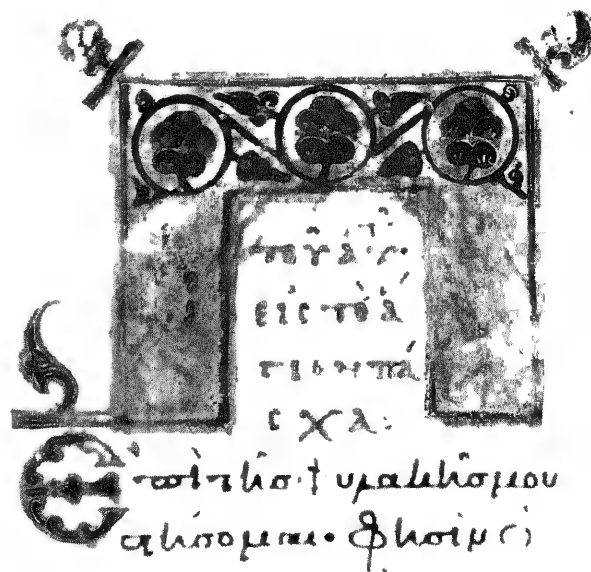 τοῦ
εἰς τὸ ἅ
γιον πά
σχα:
Ἐπὶ τῆς φυλακῆς μου
στήσομαι· φησὶν ὁ